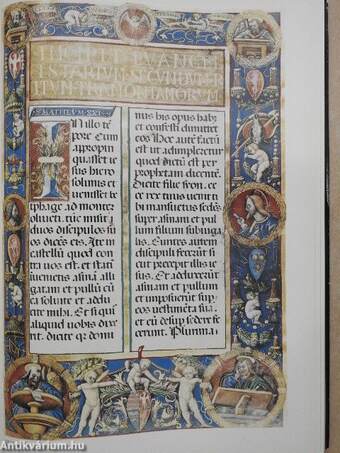 INCIPIT EVANGEL
ISTARIVM SECVNDVM
In illo te
pore Cum
appropin
quasset ie
sus hiero
solimis et
uenisset be
tphage ad montē
oliueti tūc misit
duos discipulos su
os dicēs eis. Ite in
castellū quod con
tra uos est et stati
inuenietis asinā alli
gatam et pullū cū
ea soluite et addu
cite mihi. Et si quis
aliquid uobis dixe
rit dicite q domi
nus his opus habz
et confesti dimittet
eos Hoc autē factū
est ut adimpleretur
quod dictū est per
prophetam dicentē
Dicite filie sion ec
ce rex tuus uenit ti
bi mansuetus sedēs
super asinam et pul
lum filium subiuga
lis. Euntes autem
discipuli fecerūt si
cut precepit illis ie
sus. Et adduxerūt
asinam et pullum
et imposuerūt sup
eos uestimēta sua
et eū desup sedere fe
cerunt. Plurima
Antikvárium.hu